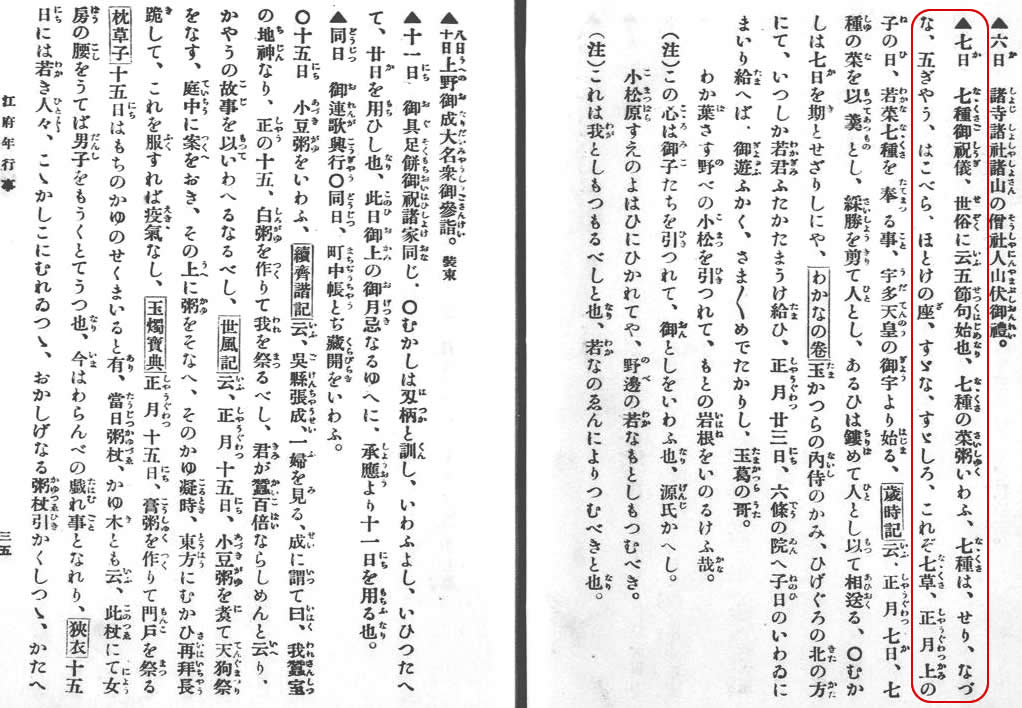 ▲六日　諸寺諸社諸山の僧社人山伏御禮。
▲七日　七種御祝儀、世俗に云五節句始也、七種の菜粥いわふ、七種は、せり、なづ
な、五ぎやう、はこべら、ほとけの座、すゞな、すゞしろ、これぞ七草、正月上の
子の日、若菜七種を奉る事、宇多天皇の御宇より始る、歲時記云、正月七日、七
種の菜を以羹とし、綵勝を剪て人とし、あるひは鏤めて人とし以て相送る、〇むか
しは七日を期とせざりしにや、わかなの卷玉かつらの內侍のかみ、ひげぐろの北の方
にて、いつしか若君ふたかたまうけ給ひ、正月廿三日、六條の院へ子日のいわゐに
まいり給へば、御遊ふかく、さま〲めでたかりし、玉葛の哥。
わか葉さす野べの小松を引つれて、もとの岩根をいのるけふ哉。
(注)この心は御子たちを引つれて、御としをいわふ也、源氏かへし。
小松原すえのよはひにひかれてや、野邊の若なもとしもつむべき。
(注)これは我としもつもるべしと也、若なのゑんによりつむべきと也。
▲八日十日上野御成大名衆御參詣。裝束
▲十一日　御具足餅御祝諸家同じ、〇むかしは刄柄と訓し、いわふよし、いひつたへ
て、廿日を用ひし也、此日御上の御月忌なるゆへに、承應より十一日を用る也。
▲同日　御連歌興行〇同日、町中帳とぢ藏開をいわふ。
〇十五日　小豆粥をいわふ、續齊諧記云、吳縣張成、一婦を見る、成に謂て曰、我蠶室
の地神なり、正の十五、白粥を作りて我を祭るべし、君が蠶百倍ならしめんと云り、
かやうの故事を以いわへるなるべし、世風記云、正月十五日、小豆粥を煑て天狗祭
をなす、庭中に案をおき、その上に粥をそなへ、そのかゆ凝時、東方にむかひ再拜長
跪して、これを服すれば疫氣なし、玉燭寶典正月十五日、膏粥を作りて門戶を祭る
枕草子十五日はもちのかゆのせくまいると有、當日粥杖、かゆ木とも云、此杖にて女
房の腰をうてば男子をもうくとてうつ也、今はわらんべの戲れ事となれり、狹衣十五
日には若き人々、こゝかしこにむれゐつゝ、おかしげなる粥杖引かくしつゝ、かたへ
江府年行事
三五